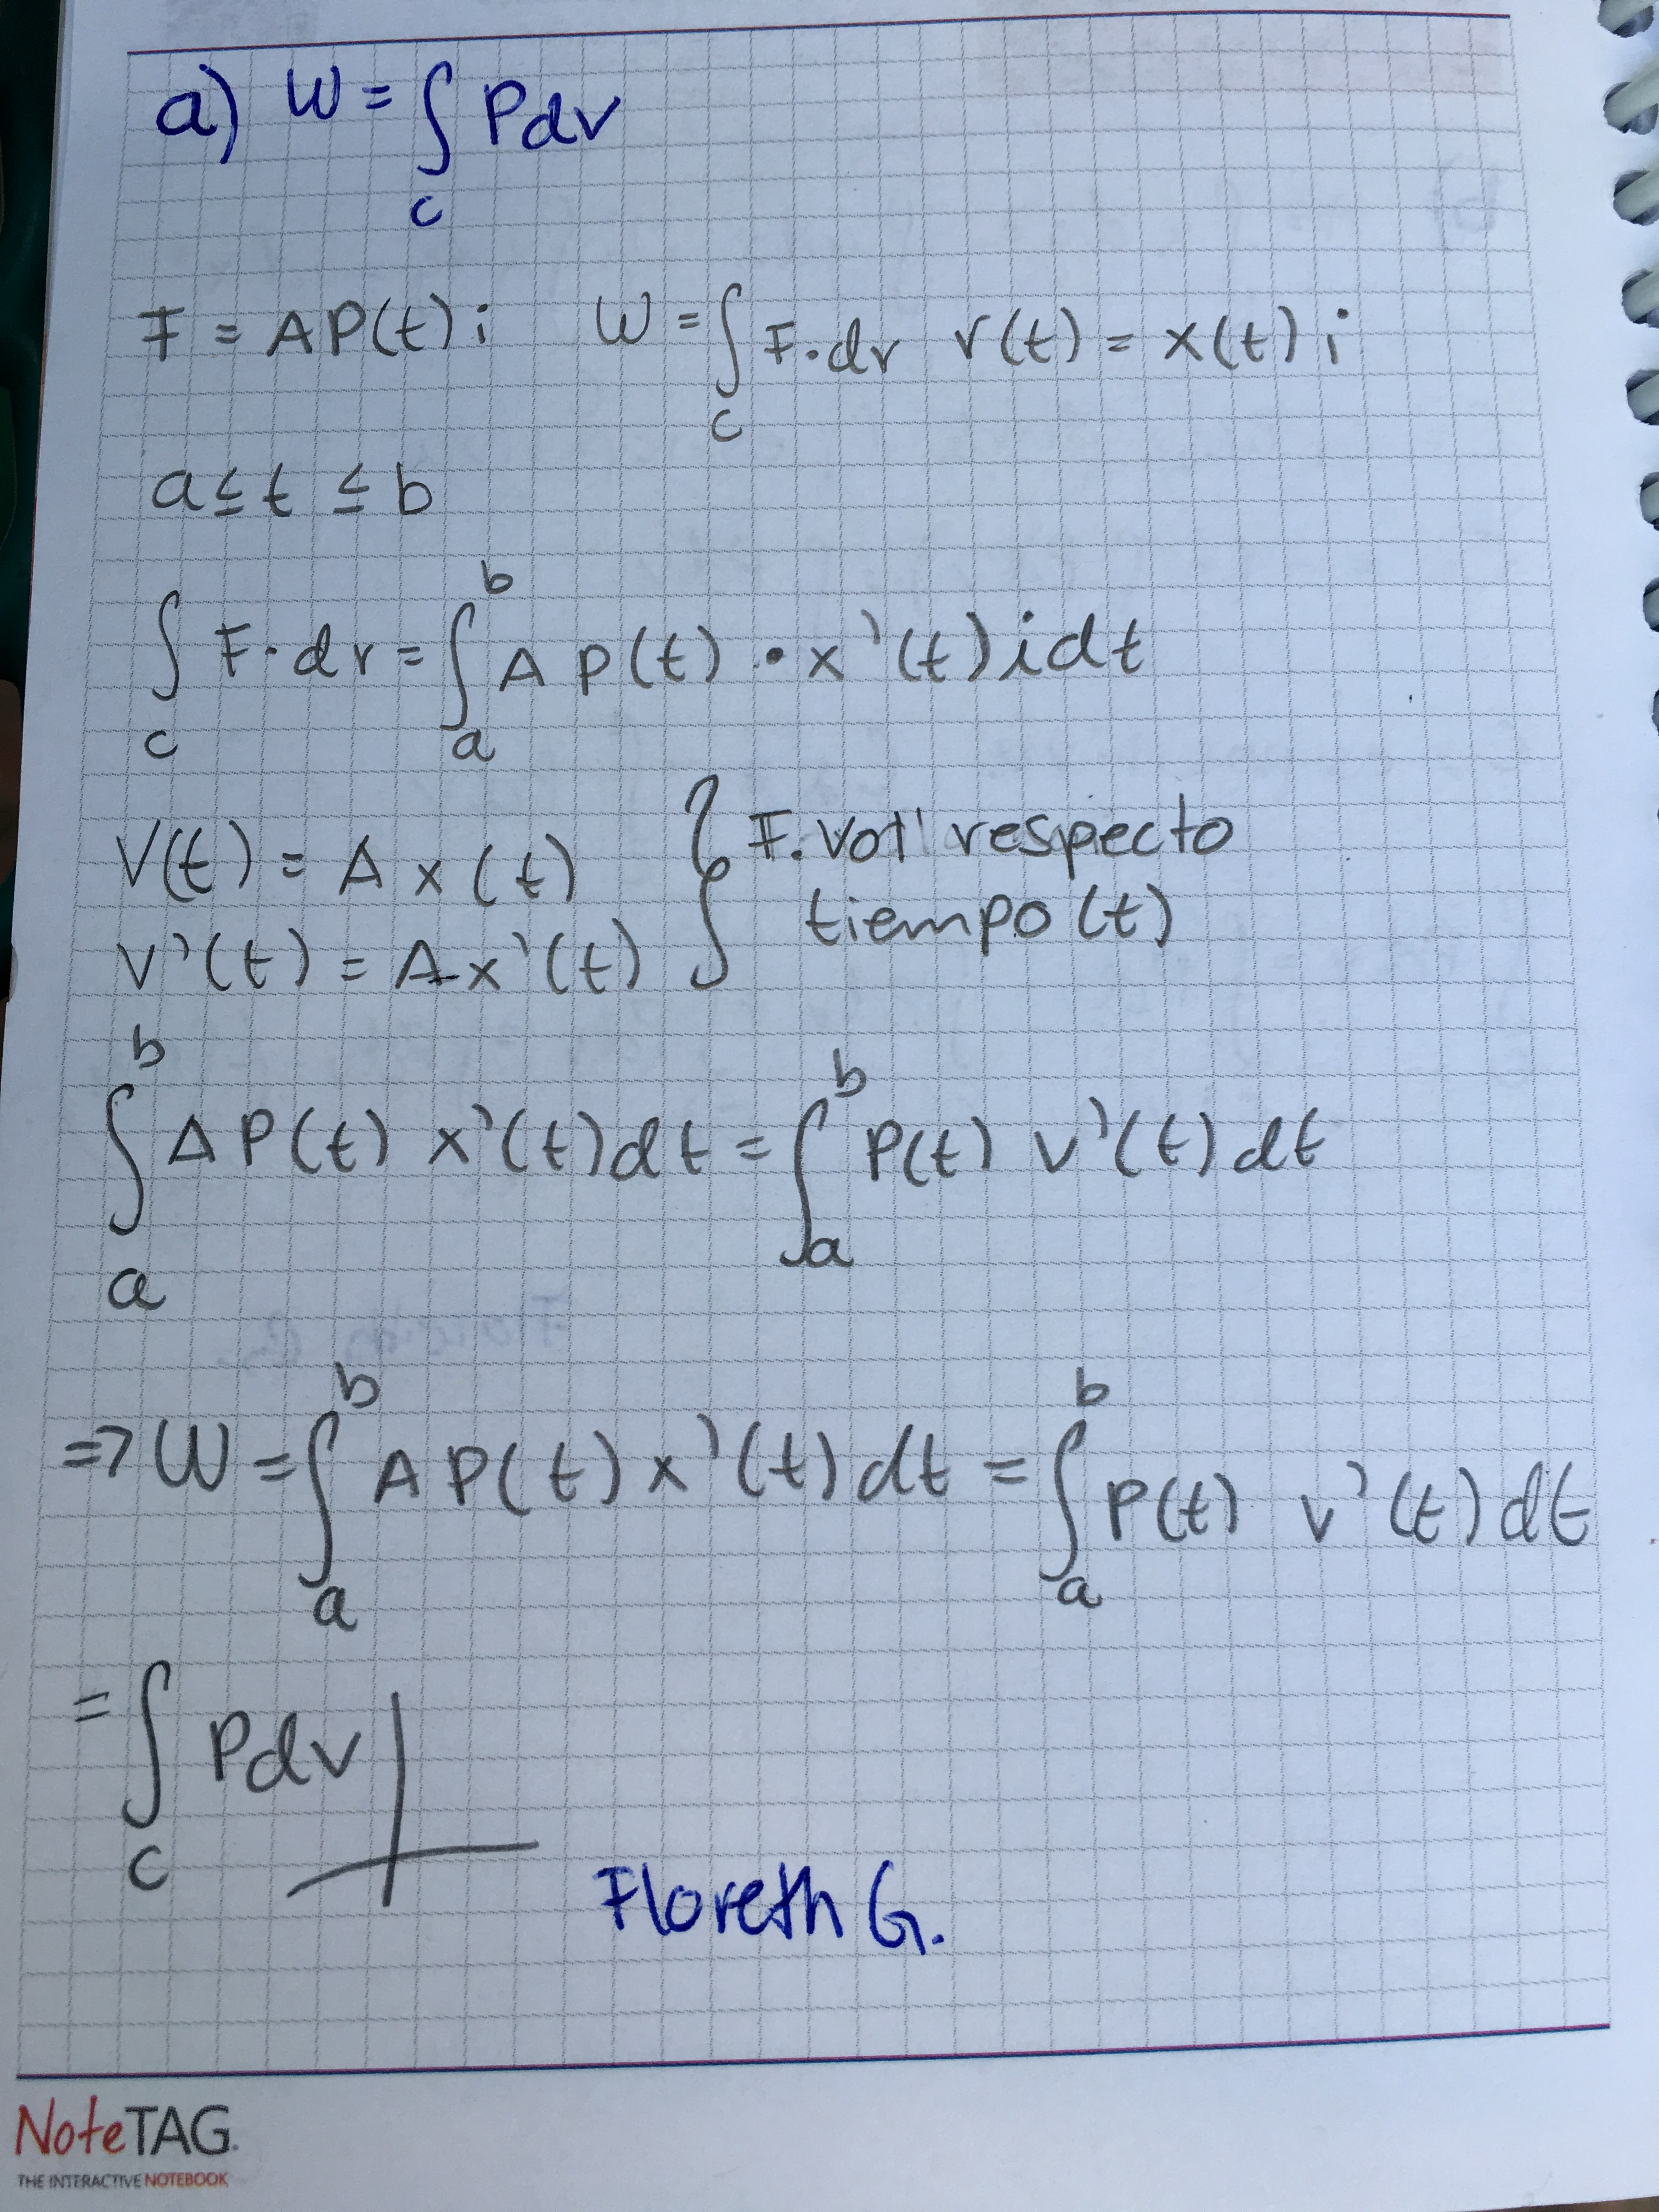 a) W = ∫_C Pdv
F = AP(t) i W = ∫_C F·dr r(t) = x(t) i
a ≤ t ≤ b
∫_C F·dr = ∫_a^b A P(t) · x'(t) i dt
V(t) = A x(t) } F. Vol respecto
V'(t) = A x'(t) tiempo (t)
∫_a^b A P(t) x'(t)dt = ∫_a^b P(t) v'(t) dt
=> W = ∫_a^b A P(t) x'(t) dt = ∫_a^b P(t) v'(t) dt
= ∫_C Pdv
Floreth G.
NoteTAG.
THE INTERACTIVE NOTEBOOK